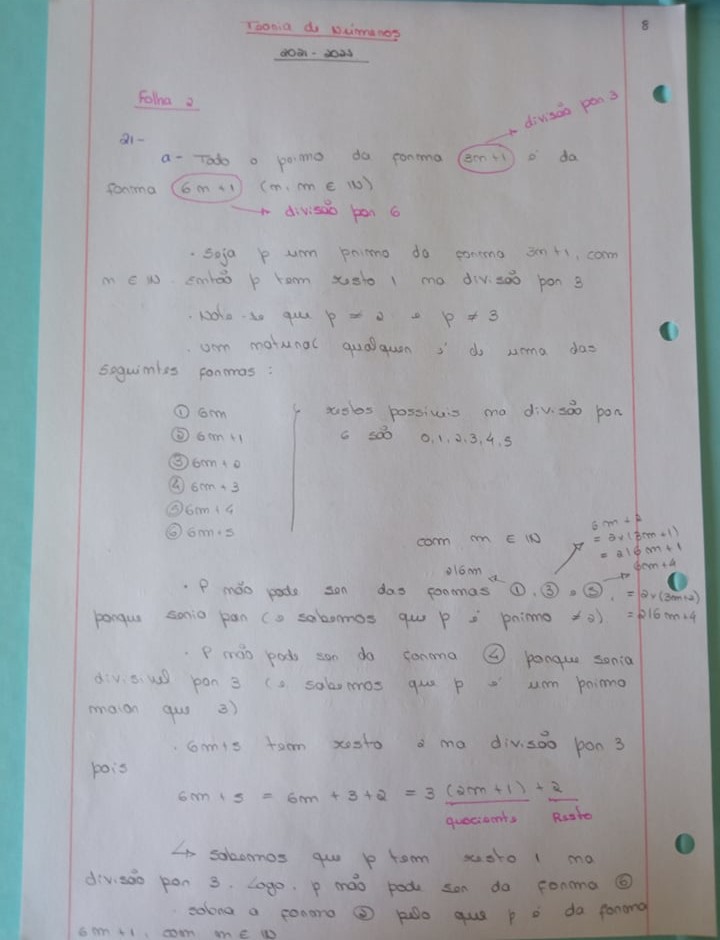 Teoria de Números
8
2021 - 2022
Folha 2
divisão por 3
21-
a- Todo o primo da forma 3m+1 é da
forma 6m+1 (m, m ∈ ℕ)
→ divisão por 6
· Seja p um primo da forma 3m+1, com
m ∈ ℕ. Então p tem resto 1 na divisão por 3
· Note-se que p ≠ 2 e p ≠ 3
· Um natural qualquer é de uma das
seguintes formas:
① 6m
② 6m+1
③ 6m+2
④ 6m+3
⑤ 6m+4
⑥ 6m+5
restos possíveis na divisão por
6 são 0,1,2,3,4,5
com m ∈ ℕ
6m+2
= 2×(3m+1)
= 2|6m+1
2|6m
6m+4
= 2×(3m+2)
= 2|6m+4
· P não pode ser das formas ①, ③ e ⑤,
porque seria par (e sabemos que p é primo ≠ 2)
· P não pode ser da forma ④ porque seria
divisível por 3 (e sabemos que p é um primo
maior que 3)
· 6m+5 tem resto 2 na divisão por 3
pois
6m+5 = 6m+3+2 = 3 (2m+1) + 2
quociente Resto
↳ sabemos que p tem resto 1 na
divisão por 3. Logo, p não pode ser da forma ⑥
· sobra a forma ② pelo que p é da forma
6m+1, com m ∈ ℕ